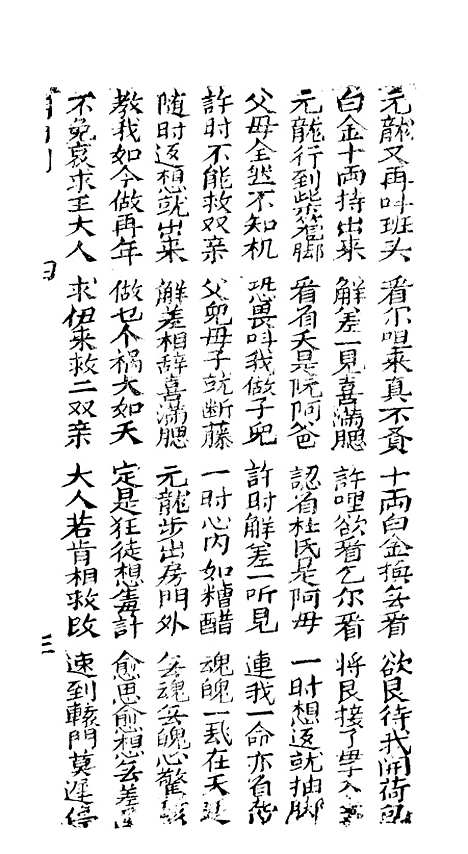 元龍又再叫班头 看尔咀来真不貪 十両白金換去看 欲艮待我開荷包
白金十両持出来 解差一見喜滿腮 許哩欲看乞尔看 将艮接了學入
元龍行到监獄脚 看着夭是院阿爸 認着杜氏是阿毋 一时想返就抽脚
父毋全然不知机 恐畏叫我做子兒 許时解差一听見 連我一命亦着
許时不能救双亲 父兒毋子就断藤 一时心内如糟醋 魂魄一我在天
随时返想就出来 解差相辞喜滿腮 元龍步出房門外 失魂失魄心驚
教我如今做再年 做乜个禍大如天 定是狂徒想毒計 愈思愈想怎去差
不免哀求王大人 求伊来救二双亲 大人若肯相救改 速到轅門莫遲停
三